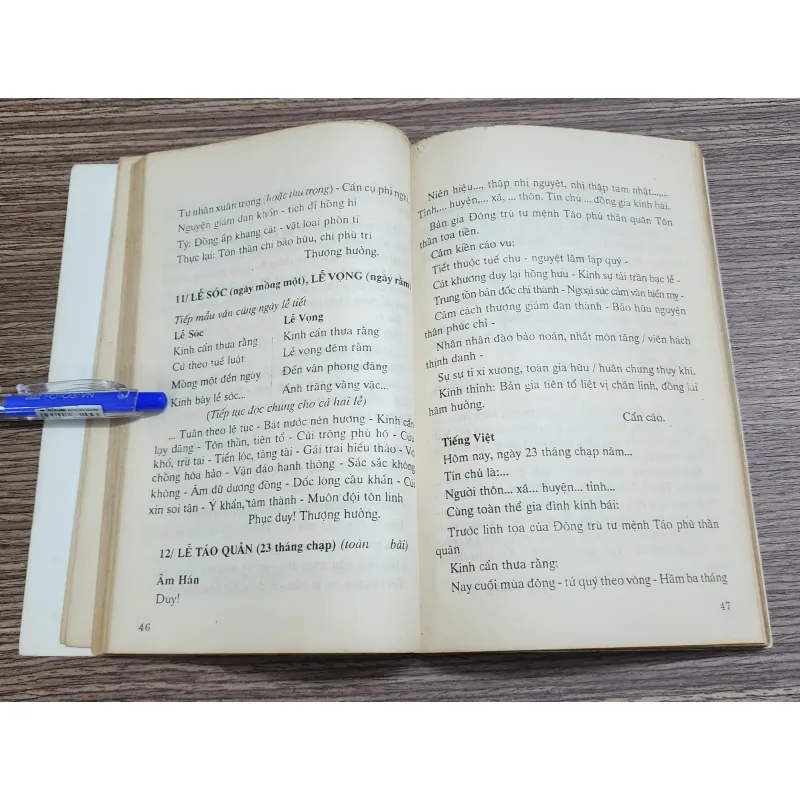 Tư nhân xuân trọng (hoặc thu trọng) - Cẩn cụ phỉ nghi,
Nguyện giám đan khổn - tích dĩ hồng hi
Tỷ: Đồng ấp khang cát - vật loại phồn tỉ
Thực lại: Tôn thần chi bảo hữu, chi phù trì
Thượng hưởng.
11/ LỄ SÓC (ngày mồng một), LỄ VỌNG (ngày rằm)
Tiếp mẫu văn cúng ngày lễ tiết
Lễ Sóc
Lễ Vọng
Kinh cẩn thưa rằng
Kính cẩn thưa rằng
Cứ theo tuế luật
Lễ vọng đêm rằm
Mồng một đến ngày
Đến vân phong đăng
Kính bày lễ sóc...
Ánh trăng vàng vặc...
(Tiếp tục đọc chung cho cả hai lễ)
... Tuân theo lệ tục - Bát nước nén hương - Kính cẩn
lạy dâng - Tôn thần, tiên tổ - Cúi trông phù hộ - Cứu
khổ, trừ tai - Tiến lộc, tăng tài - Gái trai hiếu thảo - Vợ
chồng hòa hảo - Vận đáo hanh thông - Sắc sắc không
không - Âm dữ dương đồng - Dốc lòng cầu khẩn - Cúi
xin soi tận - Ý khẩn, tâm thành - Muôn đội tôn linh
Phục duy! Thượng hưởng.
12/ LỄ TÁO QUÂN (23 tháng chạp) (toàn bài)
Âm Hán
Duy!
46
Niên hiệu..., thập nhị nguyệt, nhị thập tam nhật...,...
Tỉnh,... huyện,... xã, ... thôn. Tín chủ ... đồng gia kính bái.
Bản gia Đông trù tư mệnh Táo phủ thần quân Tôn
thần tọa tiền.
Cảm kiền cáo vu:
Tiết thuộc tuế chu - nguyệt lâm lạp quý -
Cát khương duy lại hồng hưu - Kính sự tài trần bạc lễ -
Trung tồn bản đốc chí thành - Ngoại sức cảm văn hiến mỵ -
Cảm cách thượng giám đan thành - Bảo hữu nguyện
thần phúc chỉ -
Nhân nhân đáo bảo noãn, nhất môn tăng / viên hách
thịnh danh -
Sự sự tỉ xí xương, toàn gia hữu / huân chưng thụy khí.
Kính thỉnh: Bản gia tiên tổ liệt vị chân linh, đồng lai
hâm hưởng.
Cẩn cáo.
Tiếng Việt
Hôm nay, ngày 23 tháng chạp năm...
Tín chủ là:...
Người thôn... xã... huyện... tỉnh...
Cùng toàn thể gia đình kính bái:
Trước linh tọa của Đông trù tư mệnh Táo phủ thần
quân
Kính cẩn thưa rằng:
Nay cuối mùa đông - tứ quý theo vòng - Hăm ba tháng
47